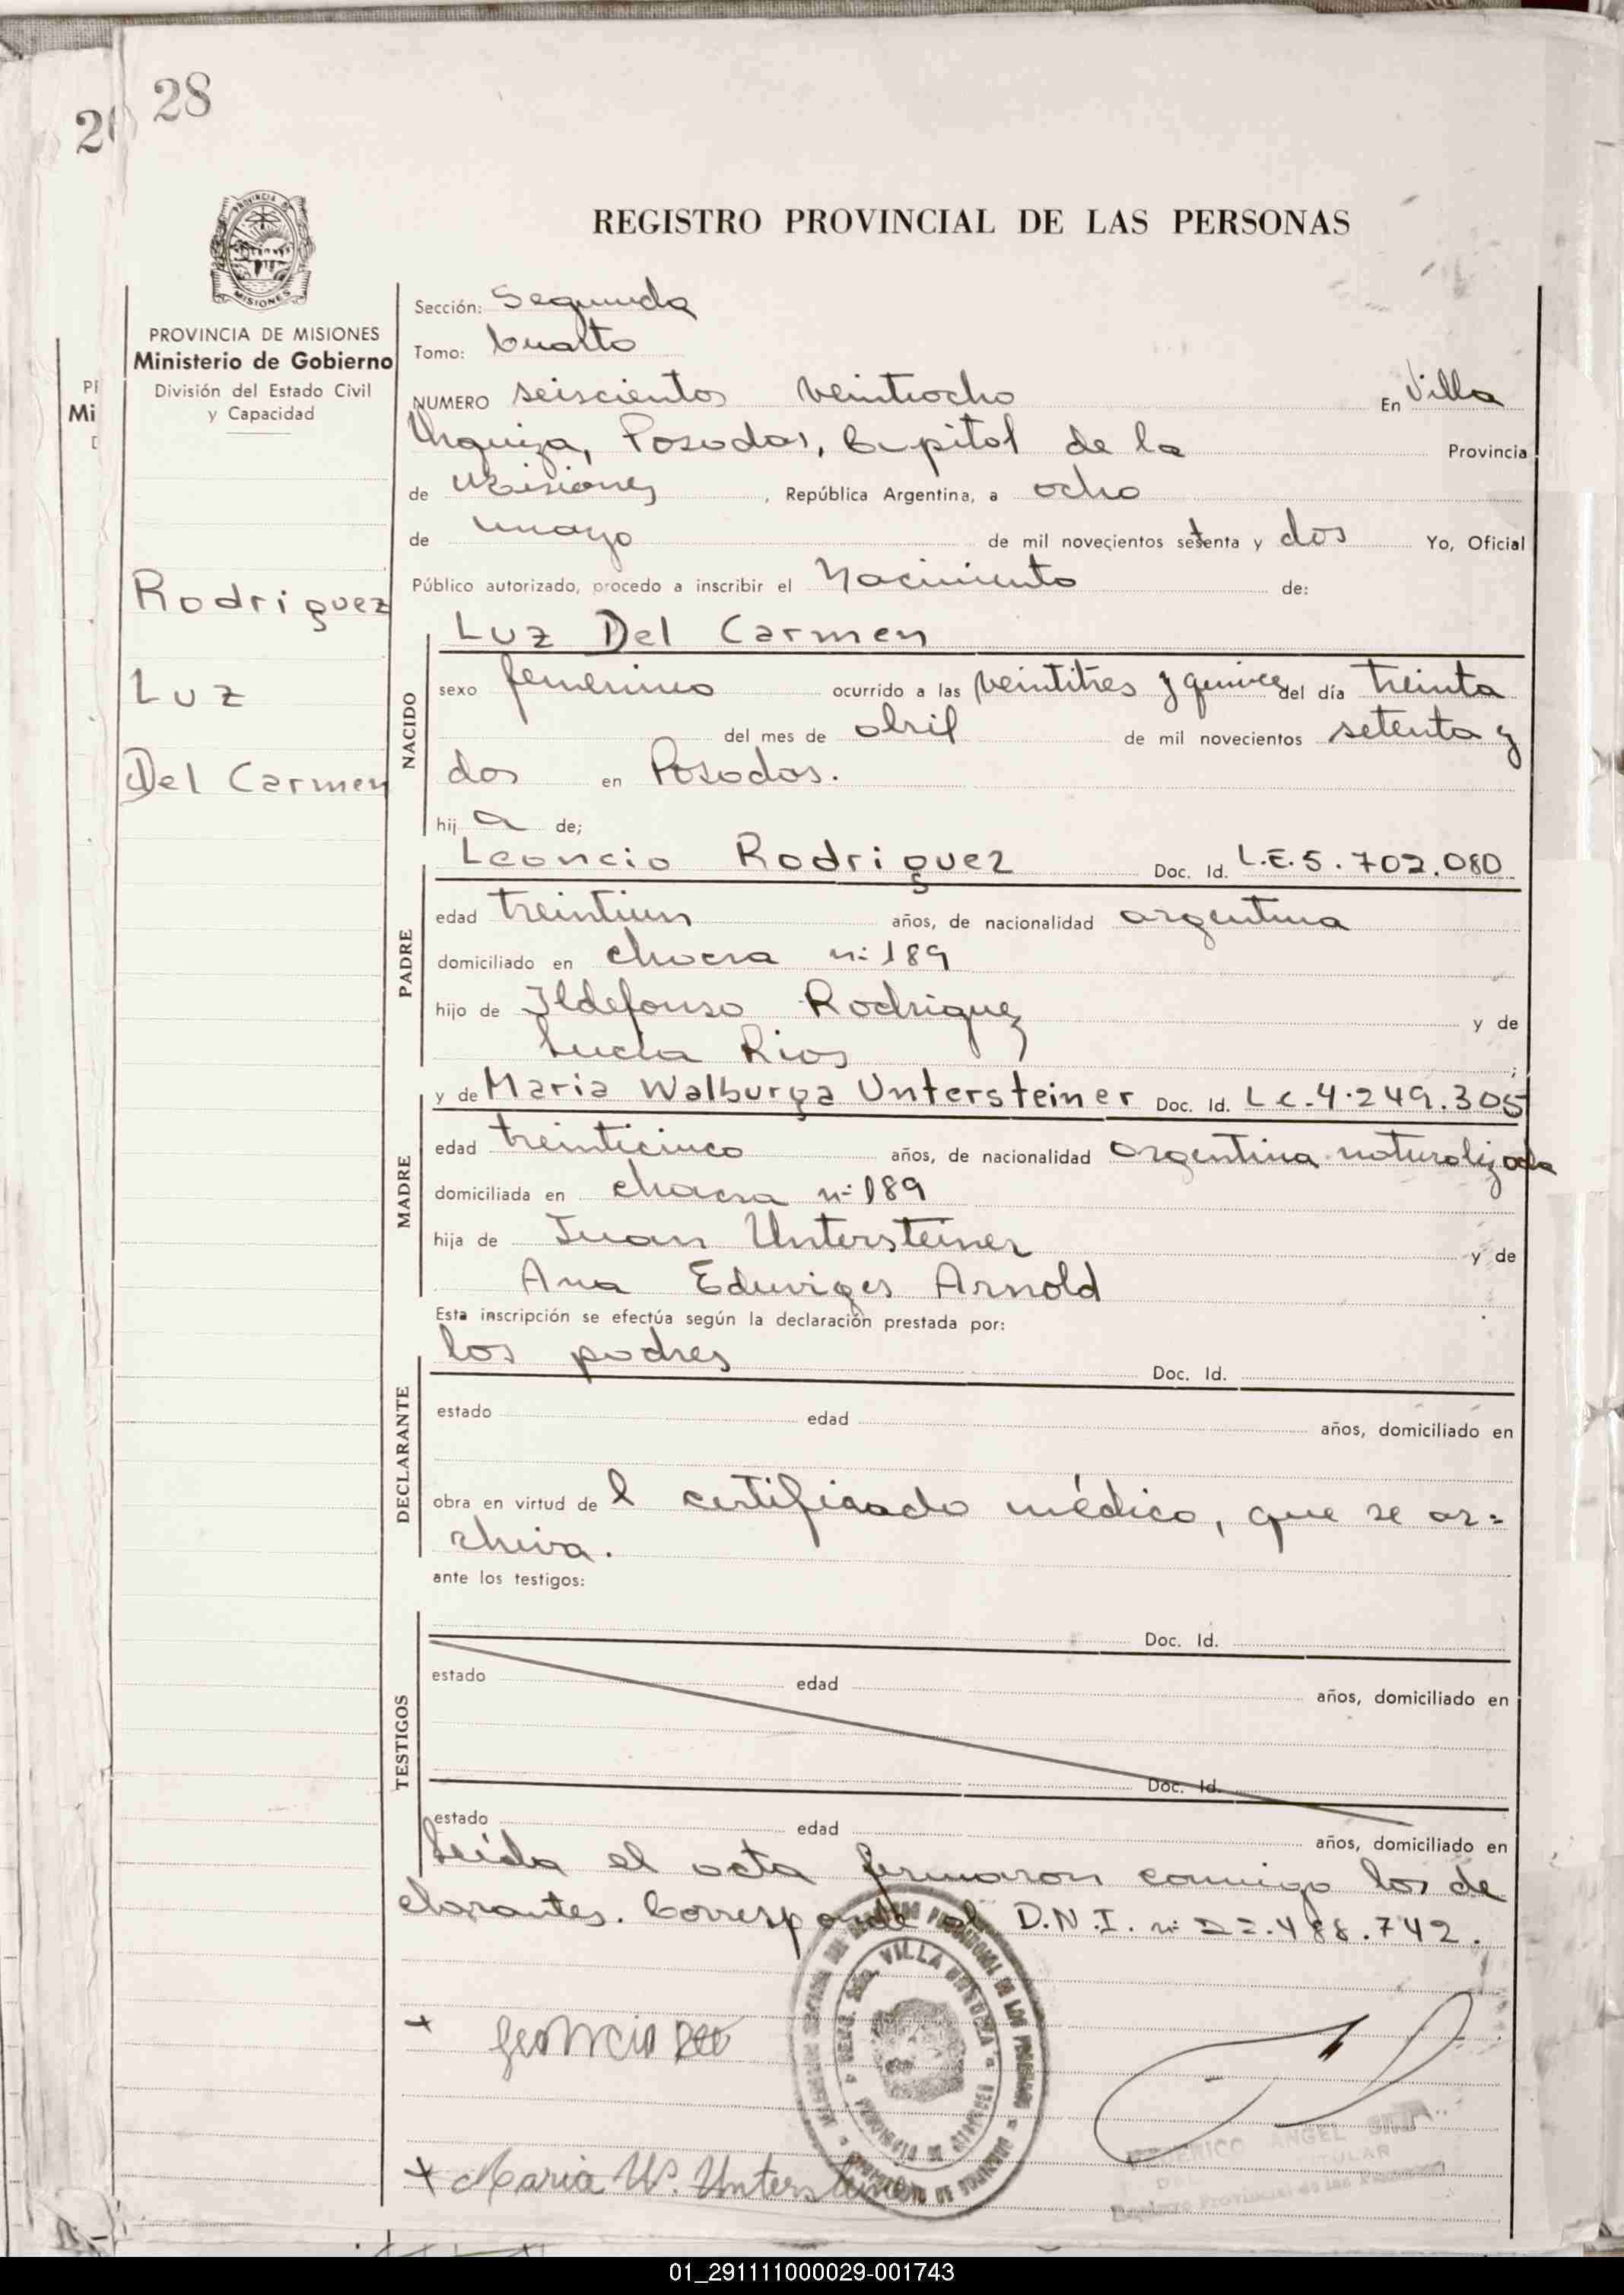 28
REGISTRO PROVINCIAL DE LAS PERSONAS
PROVINCIA DE MISIONES
Ministerio de Gobierno
División del Estado Civil
y Capacidad
Rodriguez
Luz
Del Carmen
Sección: Segunda
Tomo: Cuarto
NUMERO seiscientos veintiocho En Villa
Urquiza, Posadas, Capital de la Provincia
de Misiones, República Argentina, a ocho
de mayo de mil novecientos setenta y dos Yo, Oficial
Público autorizado, procedo a inscribir el Nacimiento de:
NACIDO
Luz Del Carmen
sexo femenino ocurrido a las veintitres y quince del día treinta
del mes de abril de mil novecientos setenta y
dos en Posadas.
hij a de;
PADRE
Leoncio Rodriguez Doc. Id. L.E.5.702.080
edad treintiun años, de nacionalidad argentina
domiciliado en chacra nº 189
hijo de Ildefonso Rodriguez y de
Lucia Rios ;
MADRE
y de Maria Walburga Untersteiner Doc. Id. L.C.4.249.305
edad treinticinco años, de nacionalidad argentina naturalizada
domiciliada en chacra nº 189
hija de Juan Untersteiner y de
Ana Eduviges Arnold
Esta inscripción se efectúa según la declaración prestada por:
DECLARANTE
los padres Doc. Id.
estado edad años, domiciliado en
obra en virtud de l certificado médico, que se ar=
chiva.
ante los testigos:
TESTIGOS
Doc. Id.
estado edad años, domiciliado en
Doc. Id.
estado edad años, domiciliado en
Leída el acta firmaron conmigo los de
clarantes. Corresponde al D.N.I. nº 22.488.742.
Leoncio
Maria W. Untersteiner
VILLA URQUIZA
PROVINCIA DE MISIONES
ANGEL
TITULAR
Registro Provincial de las Personas
01_291111000029-001743